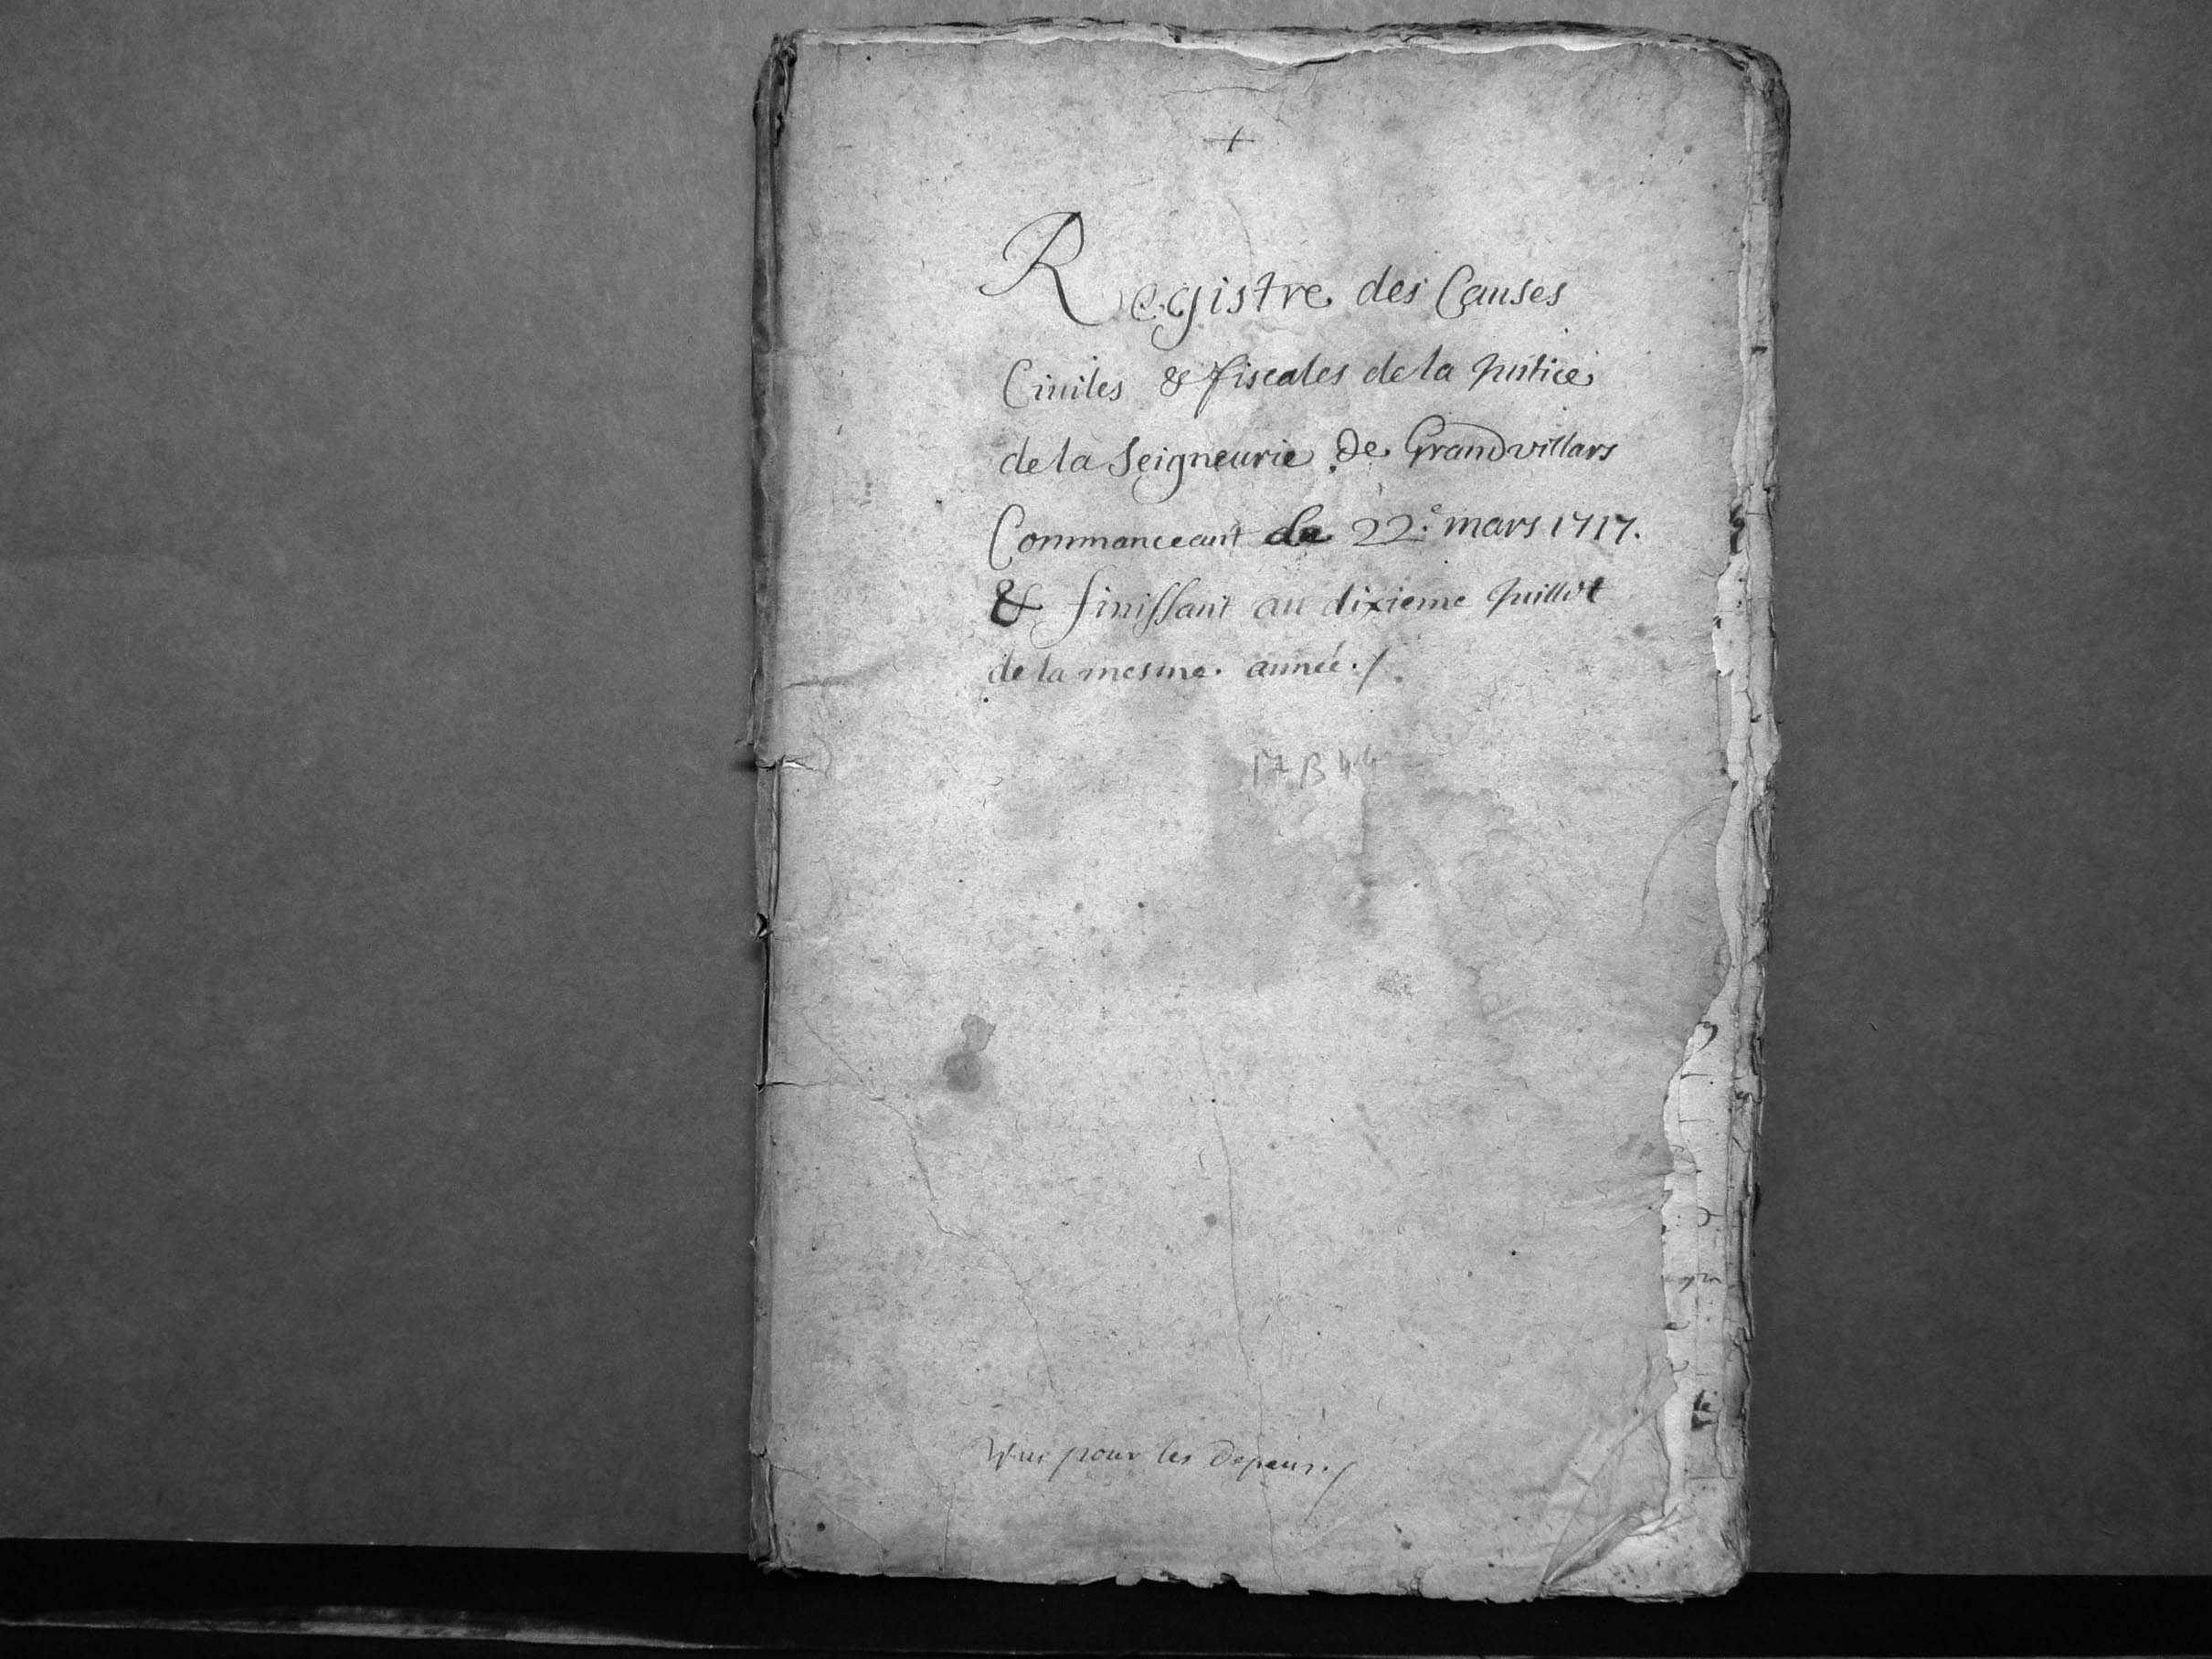 +
Registre des Causes
Ciuiles & fiscales de la Justice
de la Seigneurie De Grandvillars
Commanceant le 22.e mars 1717.
& finissant au dixieme Juillet
de la mesme. année./.
17 B 44
pour les Depens./